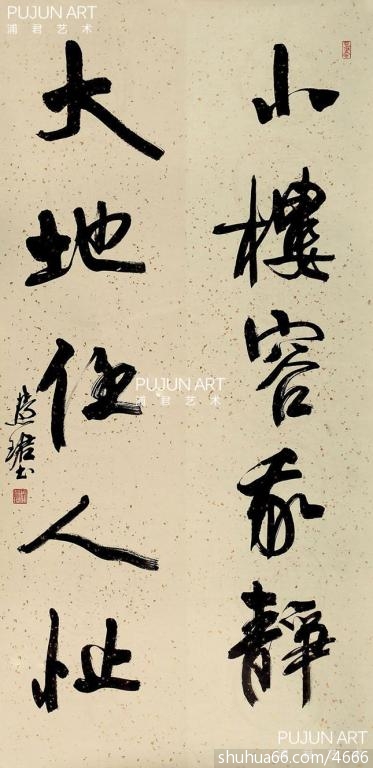 PUJUN ART
浦君艺术
PUJUN ART
浦君艺术
小樓容我靜
大地任人忙
PUJUN ART
浦君艺术
PUJUN ART
shuhua66.com/4666